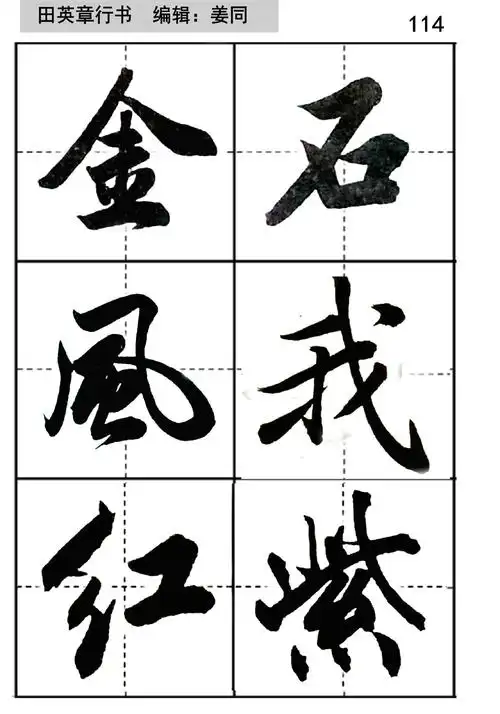 田英章行书 编辑：姜同
114
金 石
風 我
红 紫